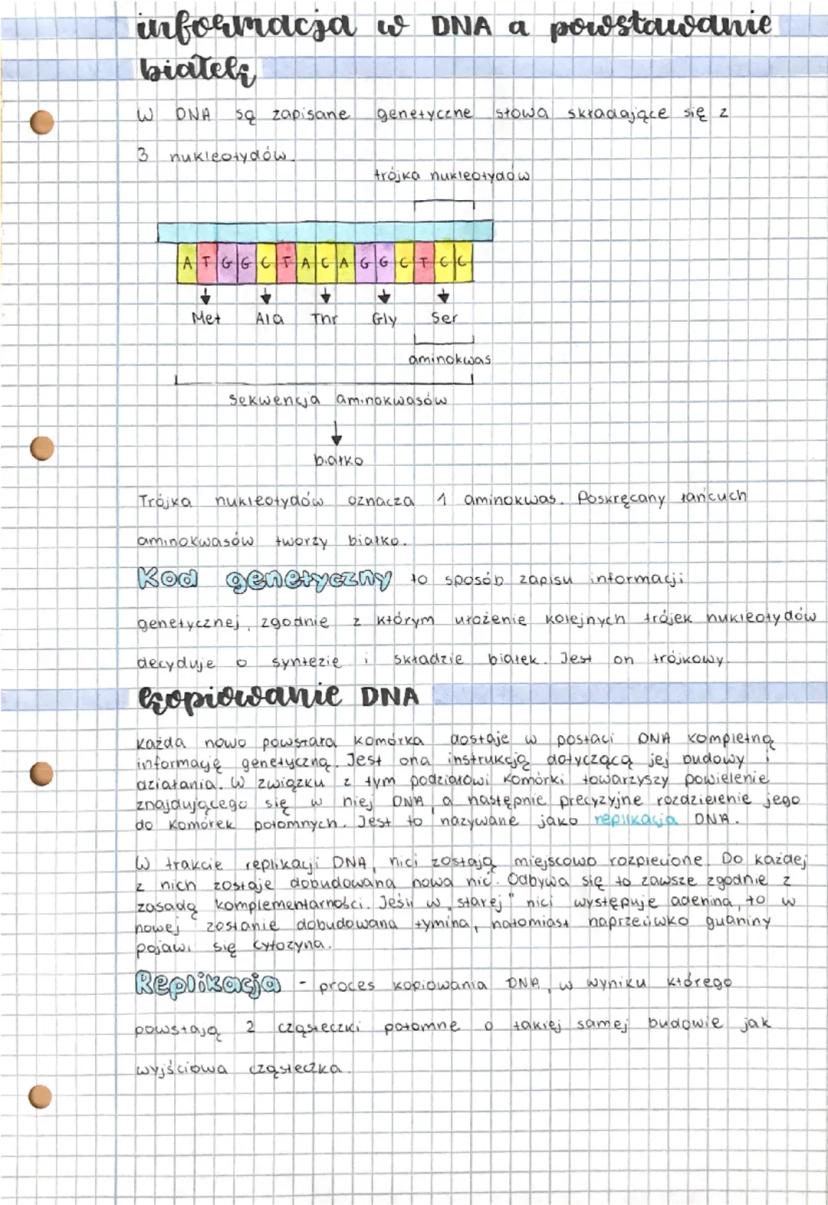 informacja w DNA a powstawanie
białek
W DNA są zapisane genetyczne słowa składające się z
3 nukleotydów.
trójka nukleotydów
A T G G C T A C A G G C T C C
Met Ala Thr Gly Ser
aminokwas
sekwencja aminokwasów
białko
Trójka nukleotydów oznacza 1 aminokwas. Poskręcany łańcuch
aminokwasów tworzy białko.
Kod genetyczny to sposób zapisu informacji
genetycznej, zgodnie z którym ułożenie kolejnych trójek nukleotydów
decyduje o syntezie i składzie białek. Jest on trójkowy.
kopiowanie DNA
Każda nowo powstała komórka dostaje w postaci DNA kompletną
informację genetyczną. Jest ona instrukcją dotyczącą jej budowy i
działania. W związku z tym podziałowi komórki towarzyszy powielenie
znajdującego się w niej DNA, a następnie precyzyjne rozdzielenie jego
do komórek potomnych. Jest to nazywane jako replikacja DNA.
W trakcie replikacji DNA, nici zostają miejscowo rozplecione. Do każdej
z nich zostaje dobudowana nowa nić. Odbywa się to zawsze zgodnie z
zasadą komplementarności. Jeśli w „starej" nici występuje adenina, to w
nowej zostanie dobudowana tymina, natomiast naprzeciwko guaniny
pojawi się cytozyna.
Replikacja - proces kopiowania DNA, w wyniku którego
powstają 2 cząsteczki potomne o takiej samej budowie jak
wyjściowa cząsteczka.